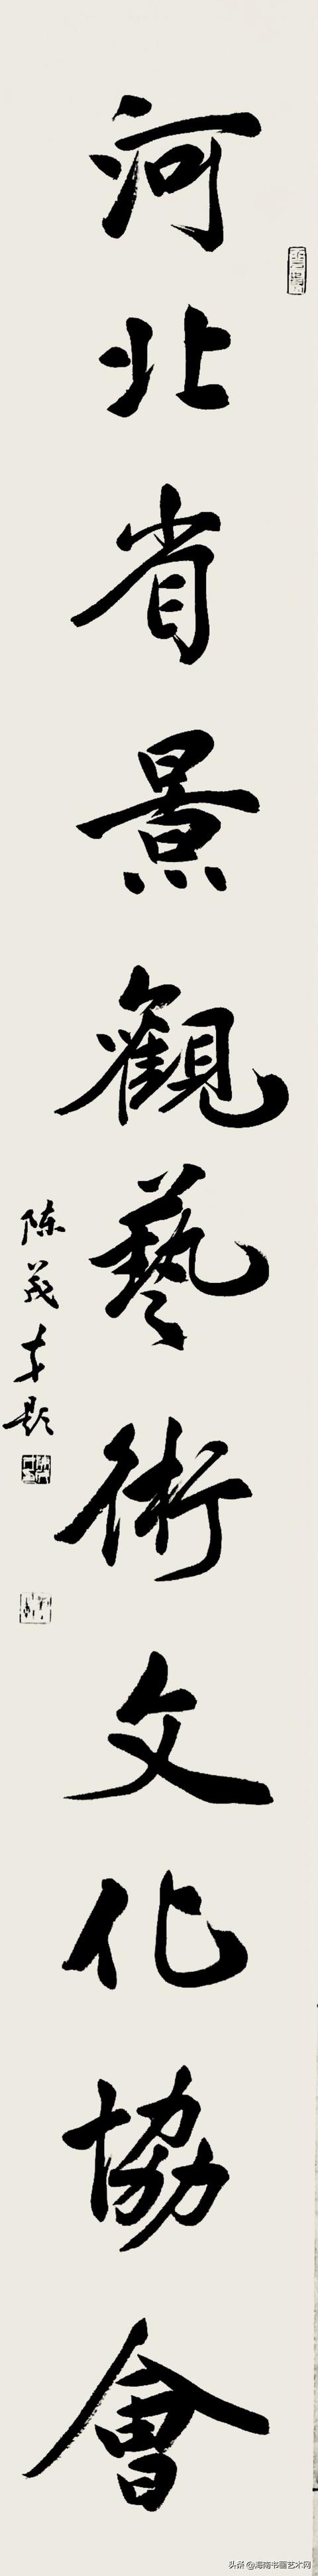 河北省景觀藝術文化協會
陈茂才题
头条 @海南书画艺术网